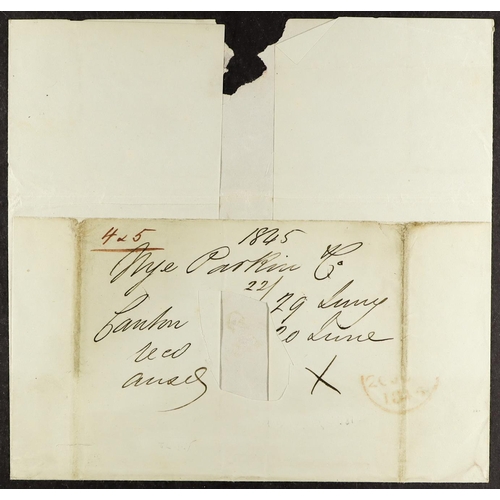 4 & 5
1845
Nye Parkin & Co
22/
29 June
Canton
20 June
recd
ansd
X